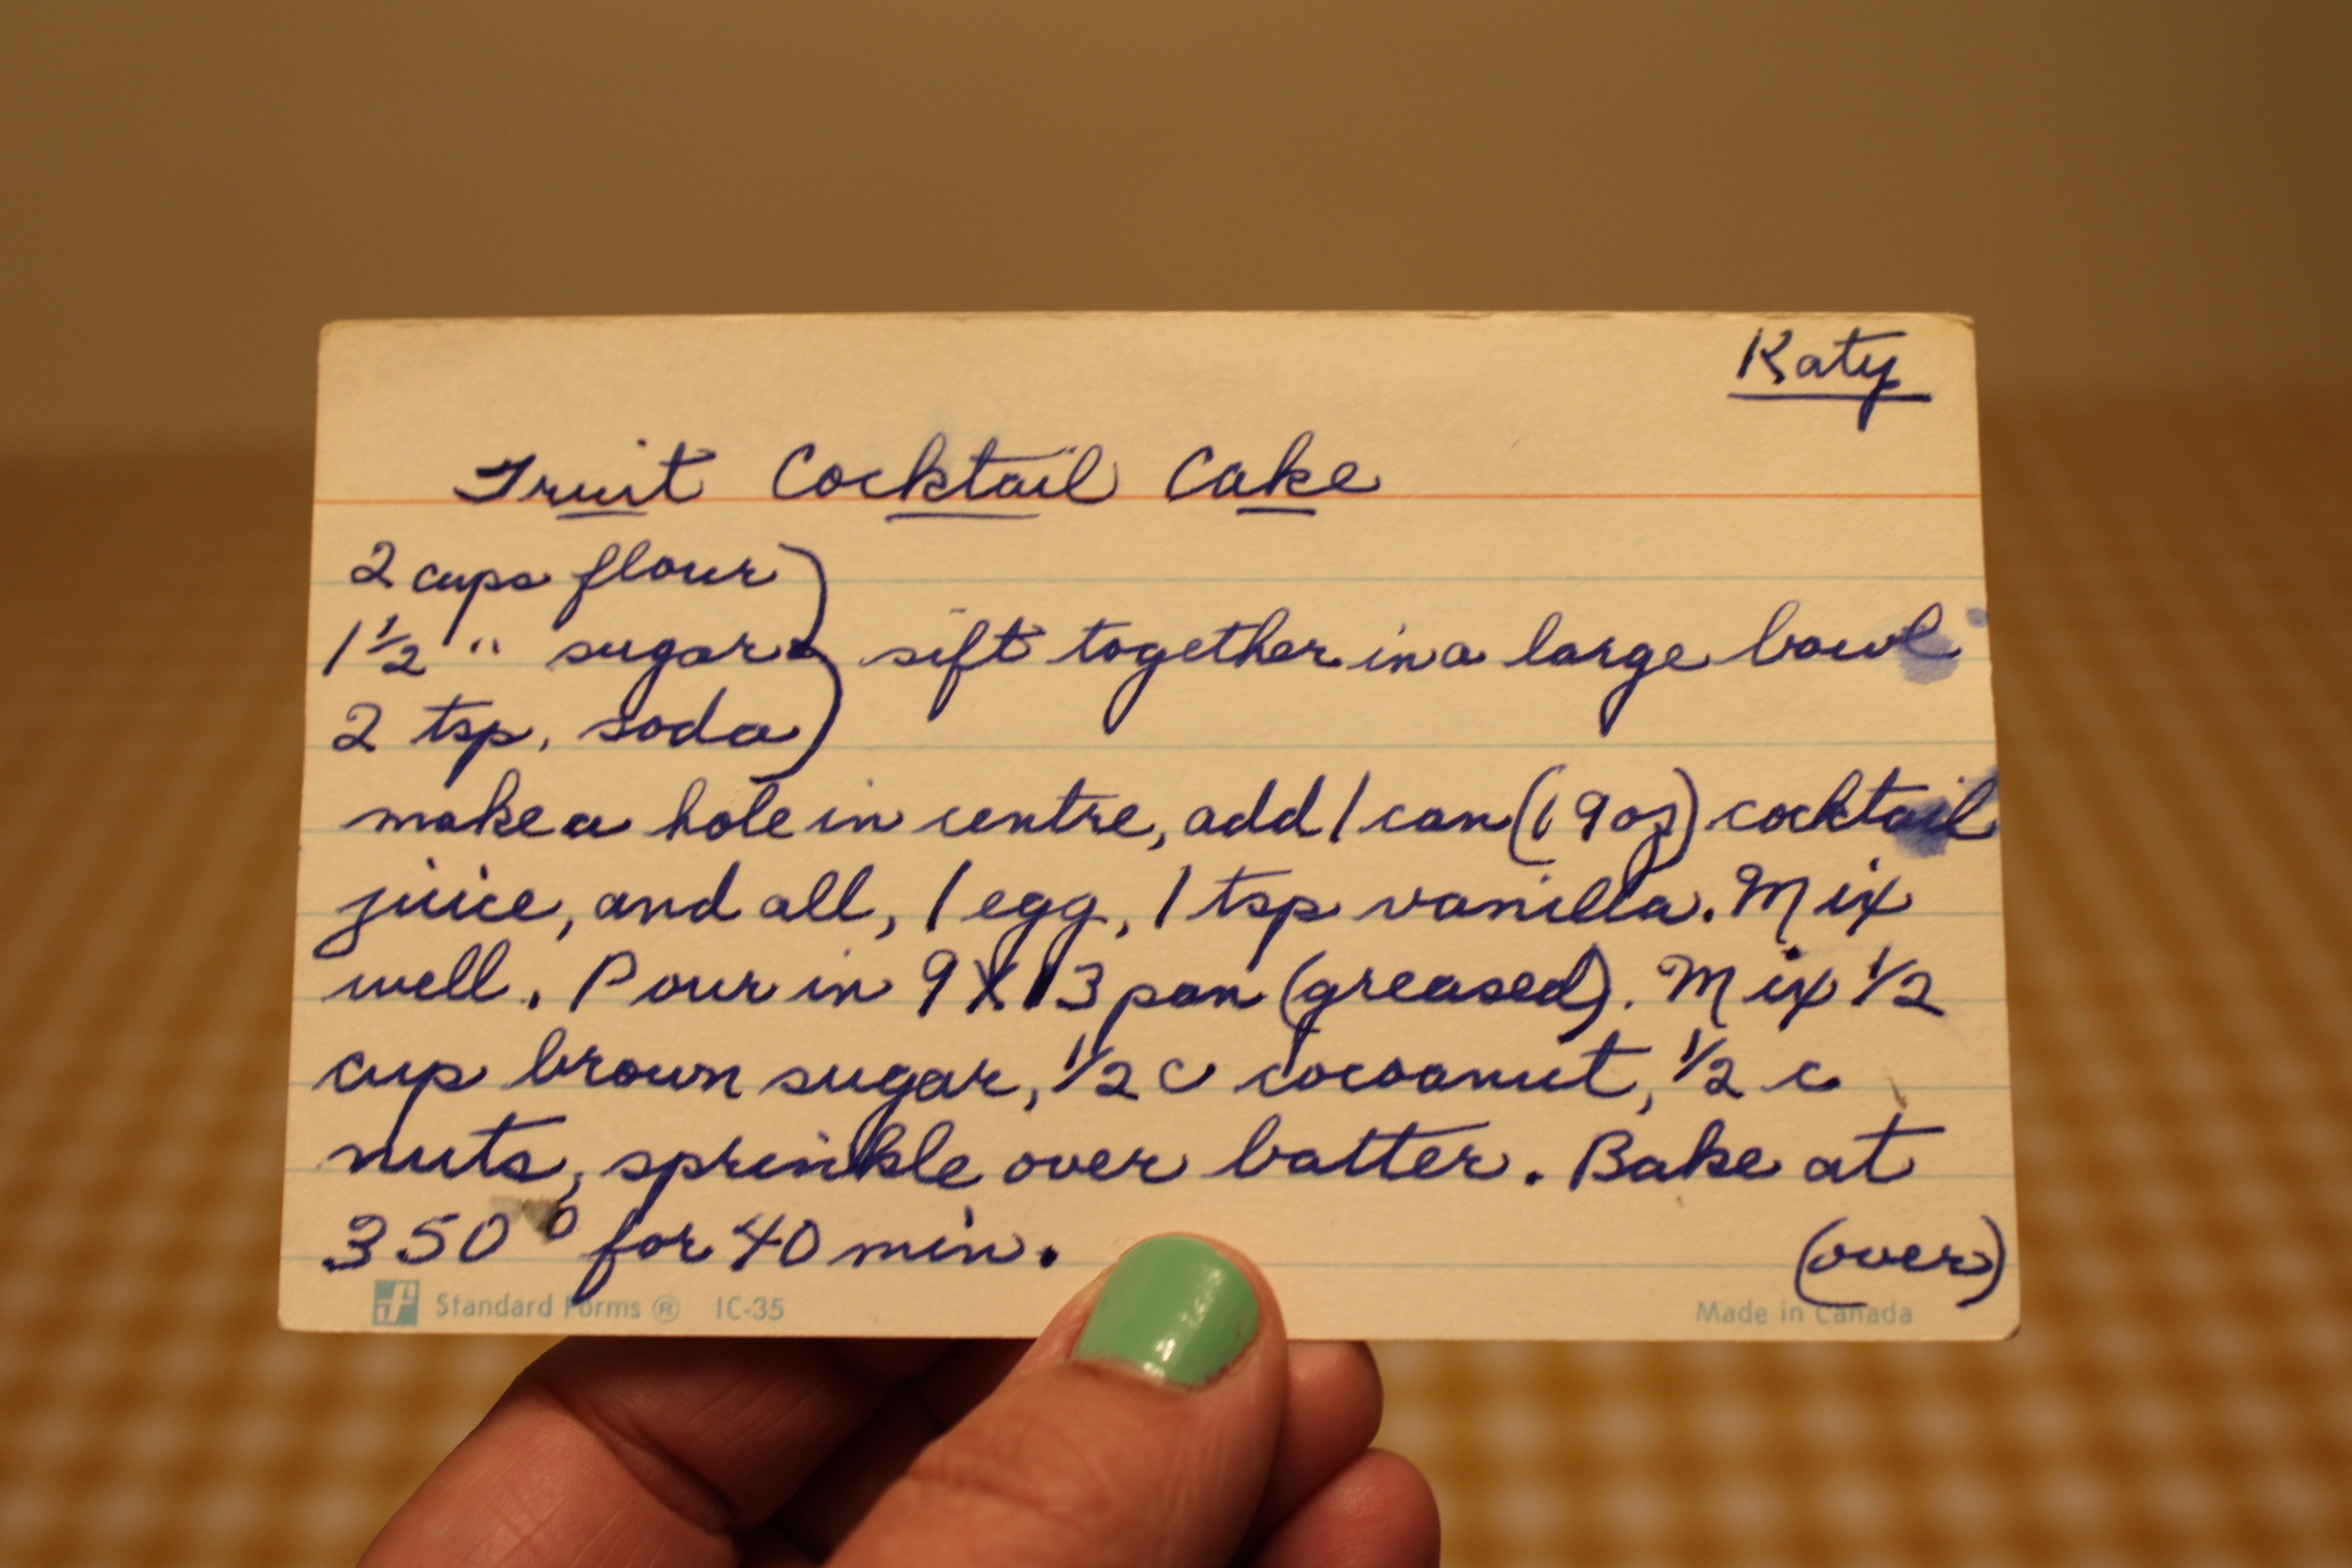 Katy
Fruit Cocktail Cake
2 cups flour
1 1/2 " sugar } sift together in a large bowl
2 tsp. soda
make a hole in centre, add 1 can (19 oz) cocktail
juice, and all, 1 egg, 1 tsp vanilla. Mix
well. Pour in 9X13 pan (greased). Mix 1/2
cup brown sugar, 1/2 c cocoanut, 1/2 c
nuts, sprinkle over batter. Bake at
350° for 40 min.
(over)
Standard Forms ® IC-35
Made in Canada